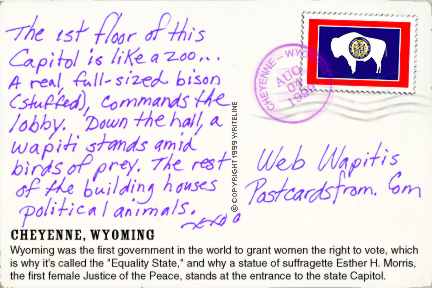 The 1st floor of this
Capitol is like a zoo...
A real, full-sized bison
(stuffed), commands the
lobby. Down the hall, a
wapiti stands amid
birds of prey. The rest
of the building houses
political animals.
CHEYENNE-WYO
AUG
© COPYRIGHT 1999 WRITELINE
Web Wapitis
Postcardsfrom.Com
CHEYENNE, WYOMING
Wyoming was the first government in the world to grant women the right to vote, which
is why it's called the "Equality State," and why a statue of suffragette Esther H. Morris,
the first female Justice of the Peace, stands at the entrance to the state Capitol.